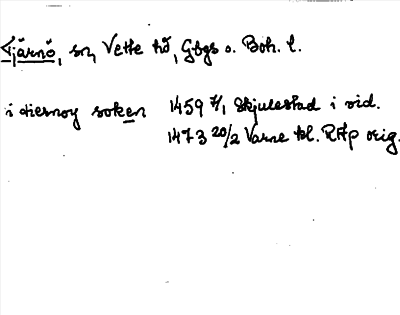 Tjärnö, sn, Vette hd, Gbgs o. Boh. l.
i tiernoy soken 1459 7/1 Skjulestad i vid.
1473 20/2 Varne kl. RAp orig.